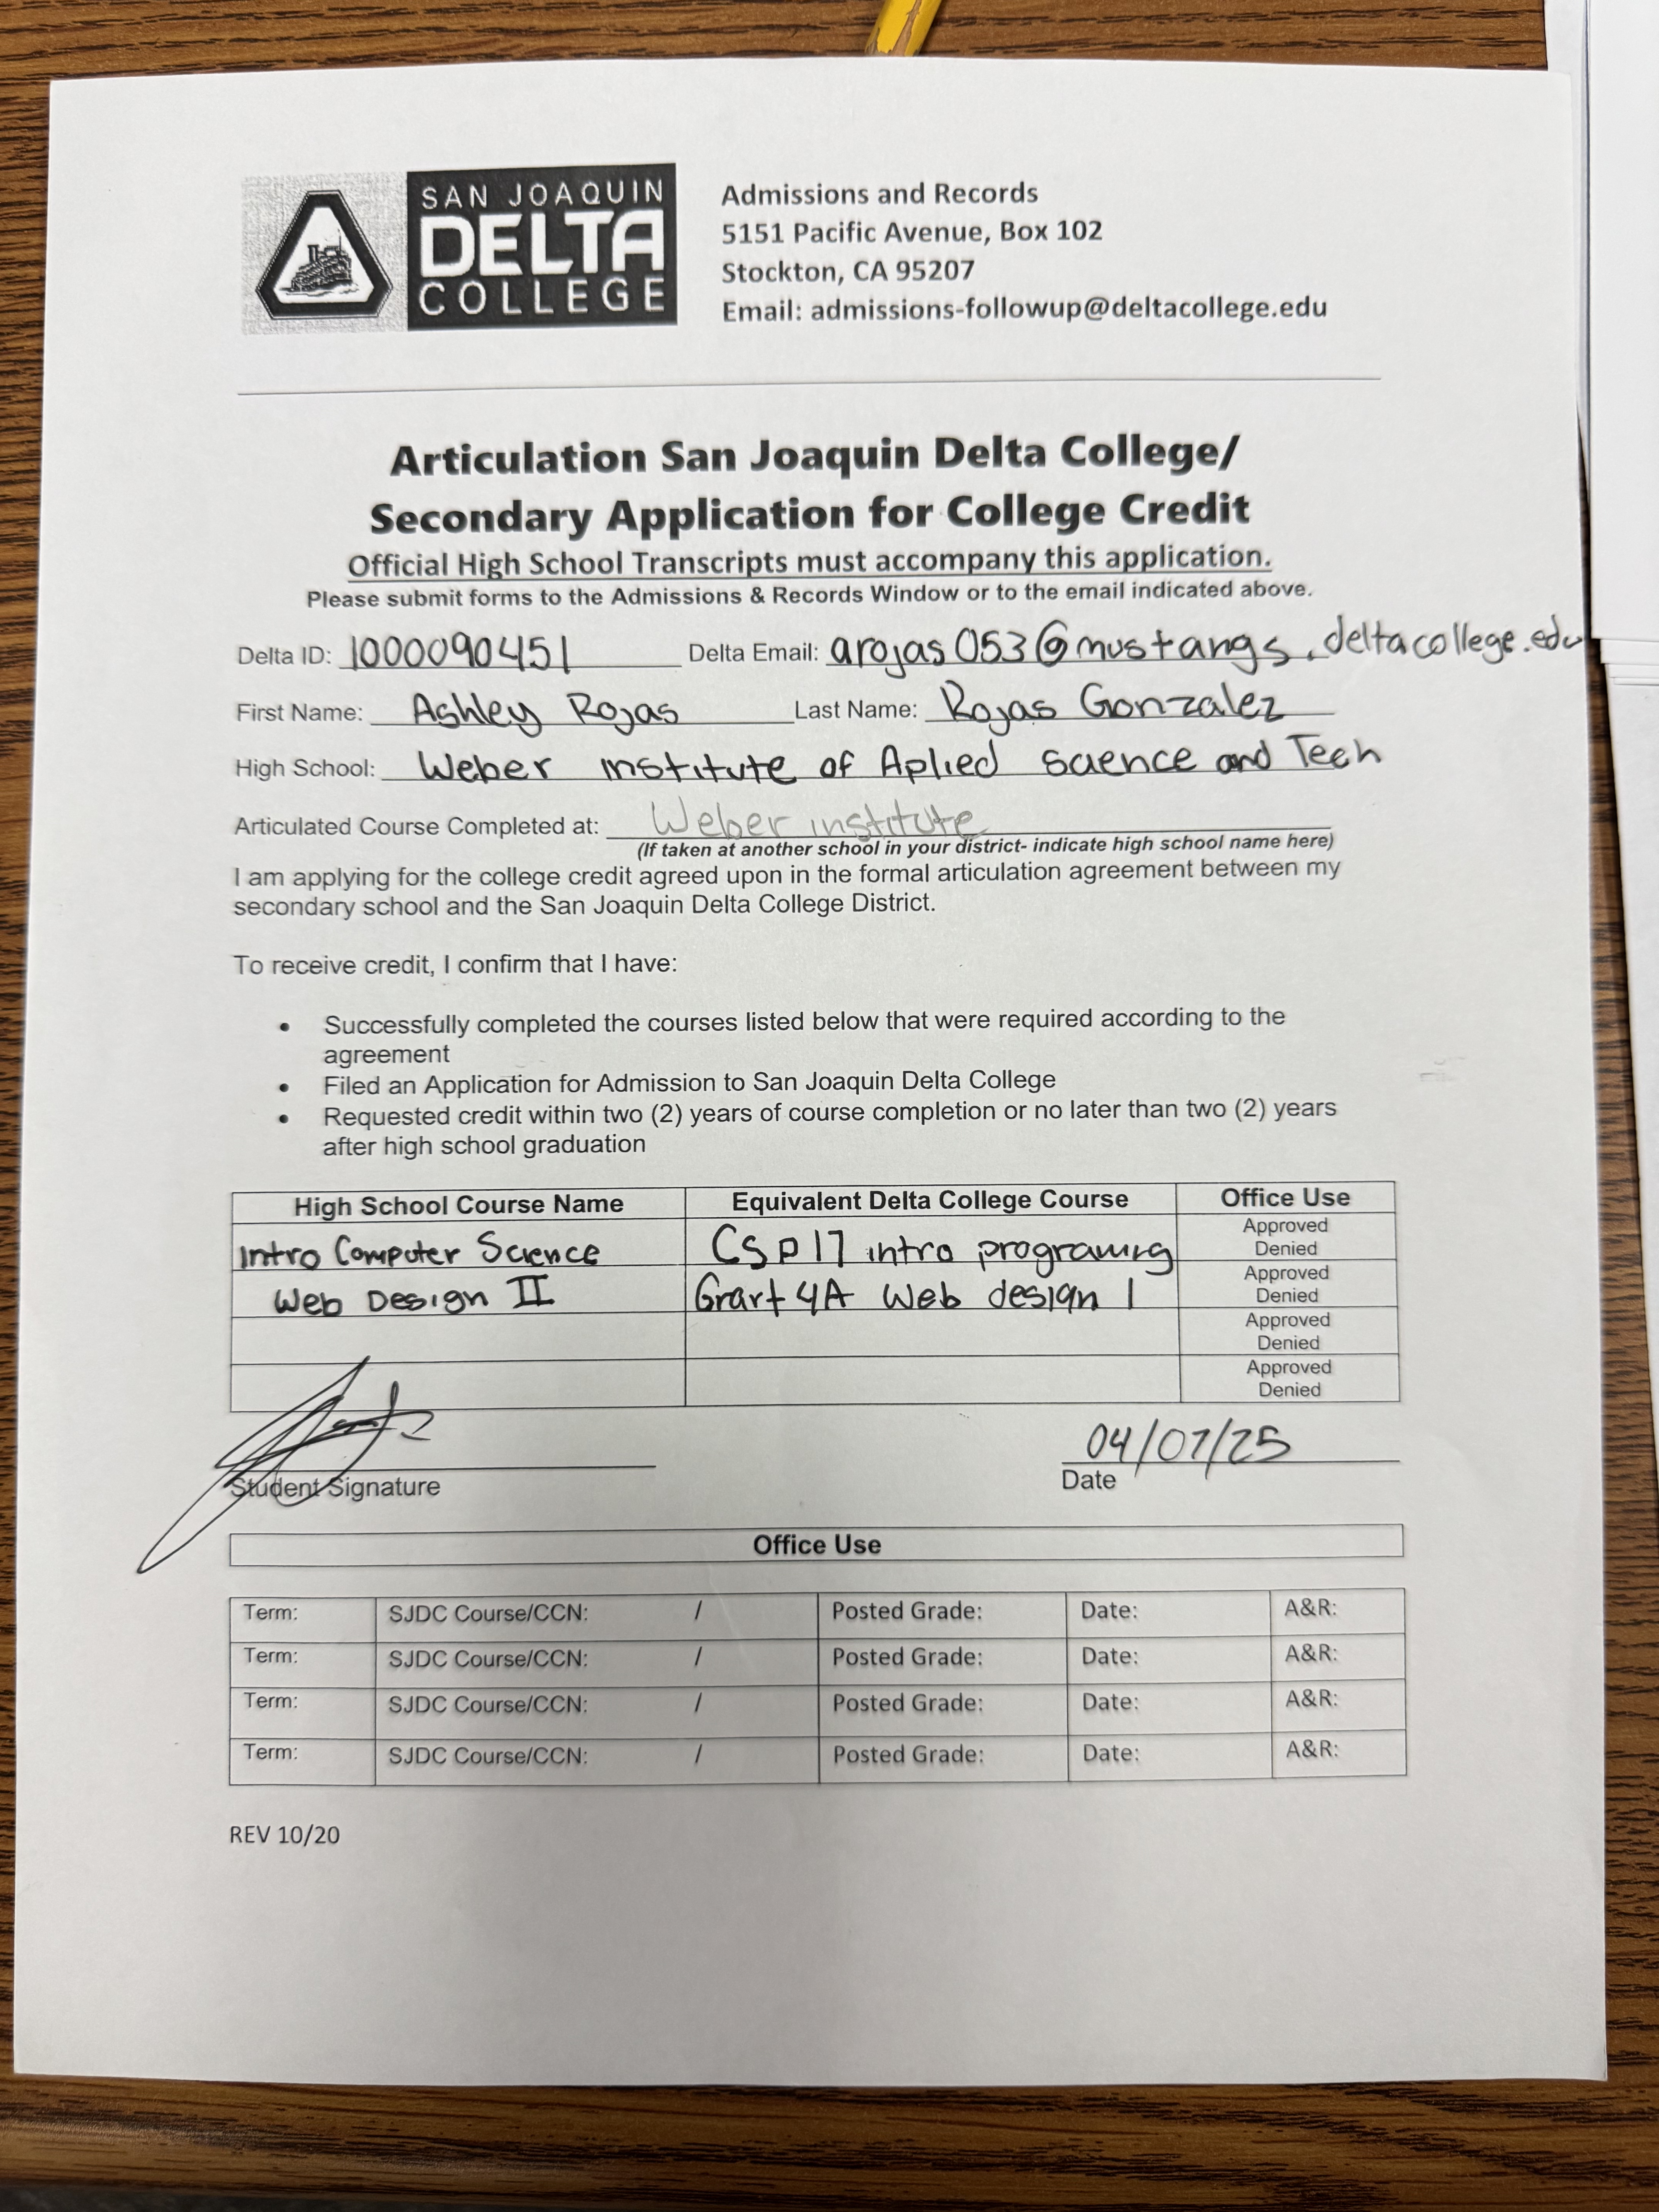 SAN JOAQUIN
DELTA
COLLEGE
Admissions and Records
5151 Pacific Avenue, Box 102
Stockton, CA 95207
Email: admissions-followup@deltacollege.edu
Articulation San Joaquin Delta College/
Secondary Application for College Credit
Official High School Transcripts must accompany this application.
Please submit forms to the Admissions & Records Window or to the email indicated above.
Delta ID: 1000090451 Delta Email: arojas053@mustangs.deltacollege.edu
First Name: Ashley Rojas Last Name: Rojas Gonzalez
High School: Weber institute of Aplied science and Tech
Articulated Course Completed at: Weber institute
(If taken at another school in your district- indicate high school name here)
I am applying for the college credit agreed upon in the formal articulation agreement between my
secondary school and the San Joaquin Delta College District.
To receive credit, I confirm that I have:
• Successfully completed the courses listed below that were required according to the
agreement
• Filed an Application for Admission to San Joaquin Delta College
• Requested credit within two (2) years of course completion or no later than two (2) years
after high school graduation
High School Course Name Equivalent Delta College Course Office Use
Intro Computer Science CSP17 intro programing Approved
Denied
Web Design II Grart 4A Web design 1 Approved
Denied
Approved
Denied
Approved
Denied
04/07/25
Student Signature Date
Office Use
Term: SJDC Course/CCN: / Posted Grade: Date: A&R:
Term: SJDC Course/CCN: / Posted Grade: Date: A&R:
Term: SJDC Course/CCN: / Posted Grade: Date: A&R:
Term: SJDC Course/CCN: / Posted Grade: Date: A&R:
REV 10/20